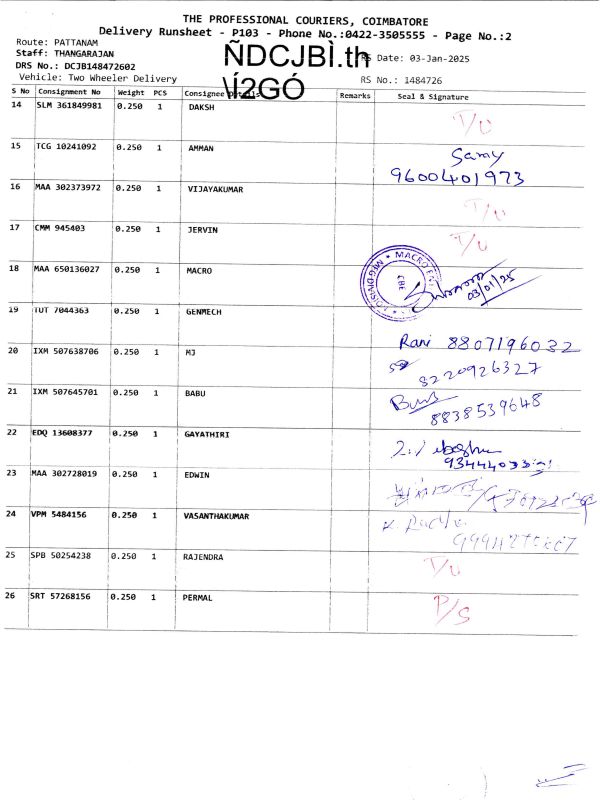 THE PROFESSIONAL COURIERS, COIMBATORE
Delivery Runsheet - P103 - Phone No.:0422-3505555 - Page No.:2
Route: PATTANAM
Staff: THANGARAJAN
DRS No.: DCJB148472602
Vehicle: Two Wheeler Delivery
ÑDCJBÌ.th
\Í2GÓ
RS Date: 03-Jan-2025
RS No.: 1484726
S No Consignment No Weight PCS Consignee Details Remarks Seal & Signature
14 SLM 361849981 0.250 1 DAKSH T/U
15 TCG 10241092 0.250 1 AMMAN Samy
9600401973
16 MAA 302373972 0.250 1 VIJAYAKUMAR T/U
17 CMM 945403 0.250 1 JERVIN T/U
18 MAA 650136027 0.250 1 MACRO 03/01/25
19 TUT 7044363 0.250 1 GENMECH Rani 8807196032
20 IXM 507638706 0.250 1 MJ 8220926327
21 IXM 507645701 0.250 1 BABU 8838539648
22 EDQ 13608377 0.250 1 GAYATHIRI
23 MAA 302728019 0.250 1 EDWIN
24 VPM 5484156 0.250 1 VASANTHAKUMAR
25 SPB 50254238 0.250 1 RAJENDRA T/U
26 SRT 57268156 0.250 1 PERMAL P/S